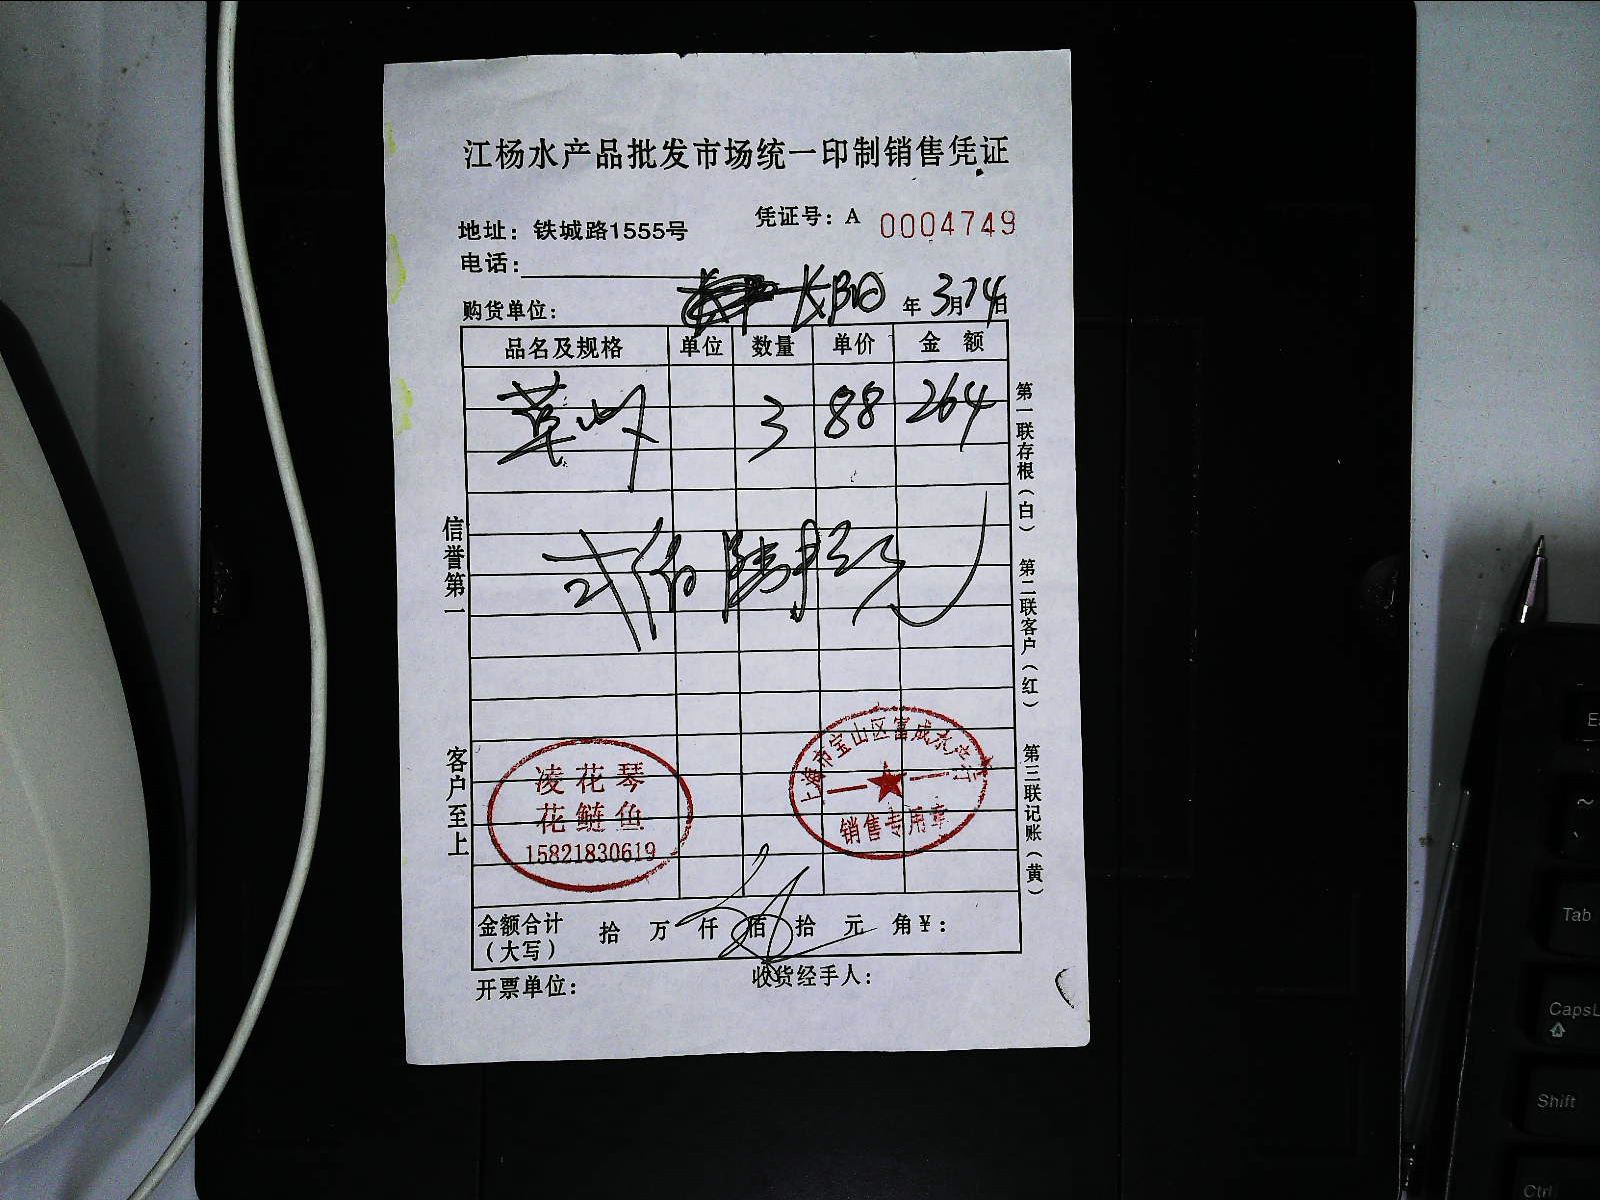 江杨水产品批发市场统一印制销售凭证
地址：铁城路1555号
凭证号：A 0004749
电话：
购货单位： 长阳 年 3月14日
品名及规格 单位 数量 单价 金额
草 3 88 264
弍佰陆拾 元
信誉第一 客户至上
第一联存根（白） 第二联客户（红） 第三联记账（黄）
凌花琴
花鲢鱼
15821830619
上海市宝山区富成水产行
销售专用章
金额合计（大写） 拾 万 仟 佰 拾 元 角 ¥：
开票单位： 收货经手人：
Es
~
Tab
CapsL
Shift
Ctrl